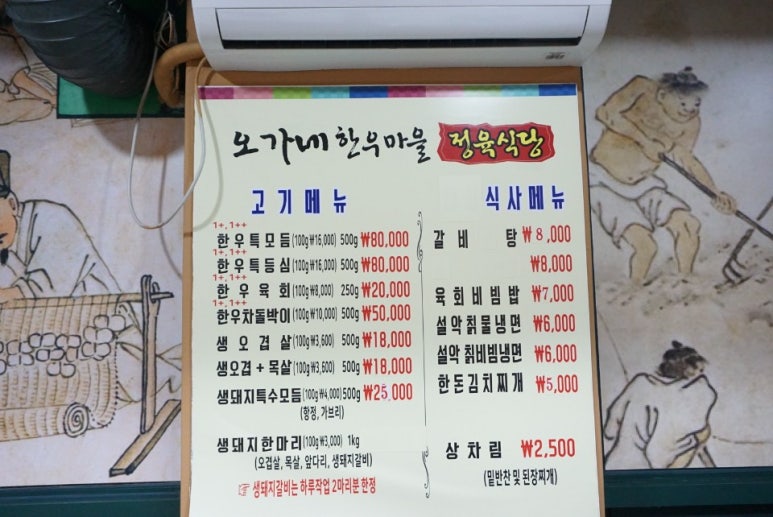 오가네 한우마을 정육식당
고기메뉴
1+, 1++
한우특모듬 (100g ₩16,000) 500g ₩80,000
1+, 1++
한우특등심 (100g ₩16,000) 500g ₩80,000
1+, 1++
한우육회 (100g ₩8,000) 250g ₩20,000
1+, 1++
한우차돌박이 (100g ₩10,000) 500g ₩50,000
생오겹살 (100g ₩3,600) 500g ₩18,000
생오겹+목살 (100g ₩3,600) 500g ₩18,000
생돼지특수모듬 (100g ₩4,000) 500g ₩25,000
(항정, 가브리)
생돼지한마리 (100g ₩3,000) 1kg
(오겹살, 목살, 앞다리, 생돼지갈비)
☞ 생돼지갈비는 하루작업 2마리분 한정
식사메뉴
갈비탕 ₩8,000
₩8,000
육회비빔밥 ₩7,000
설악칡물냉면 ₩6,000
설악칡비빔냉면 ₩6,000
한돈김치찌개 ₩5,000
상차림 ₩2,500
(밑반찬 및 된장찌개)